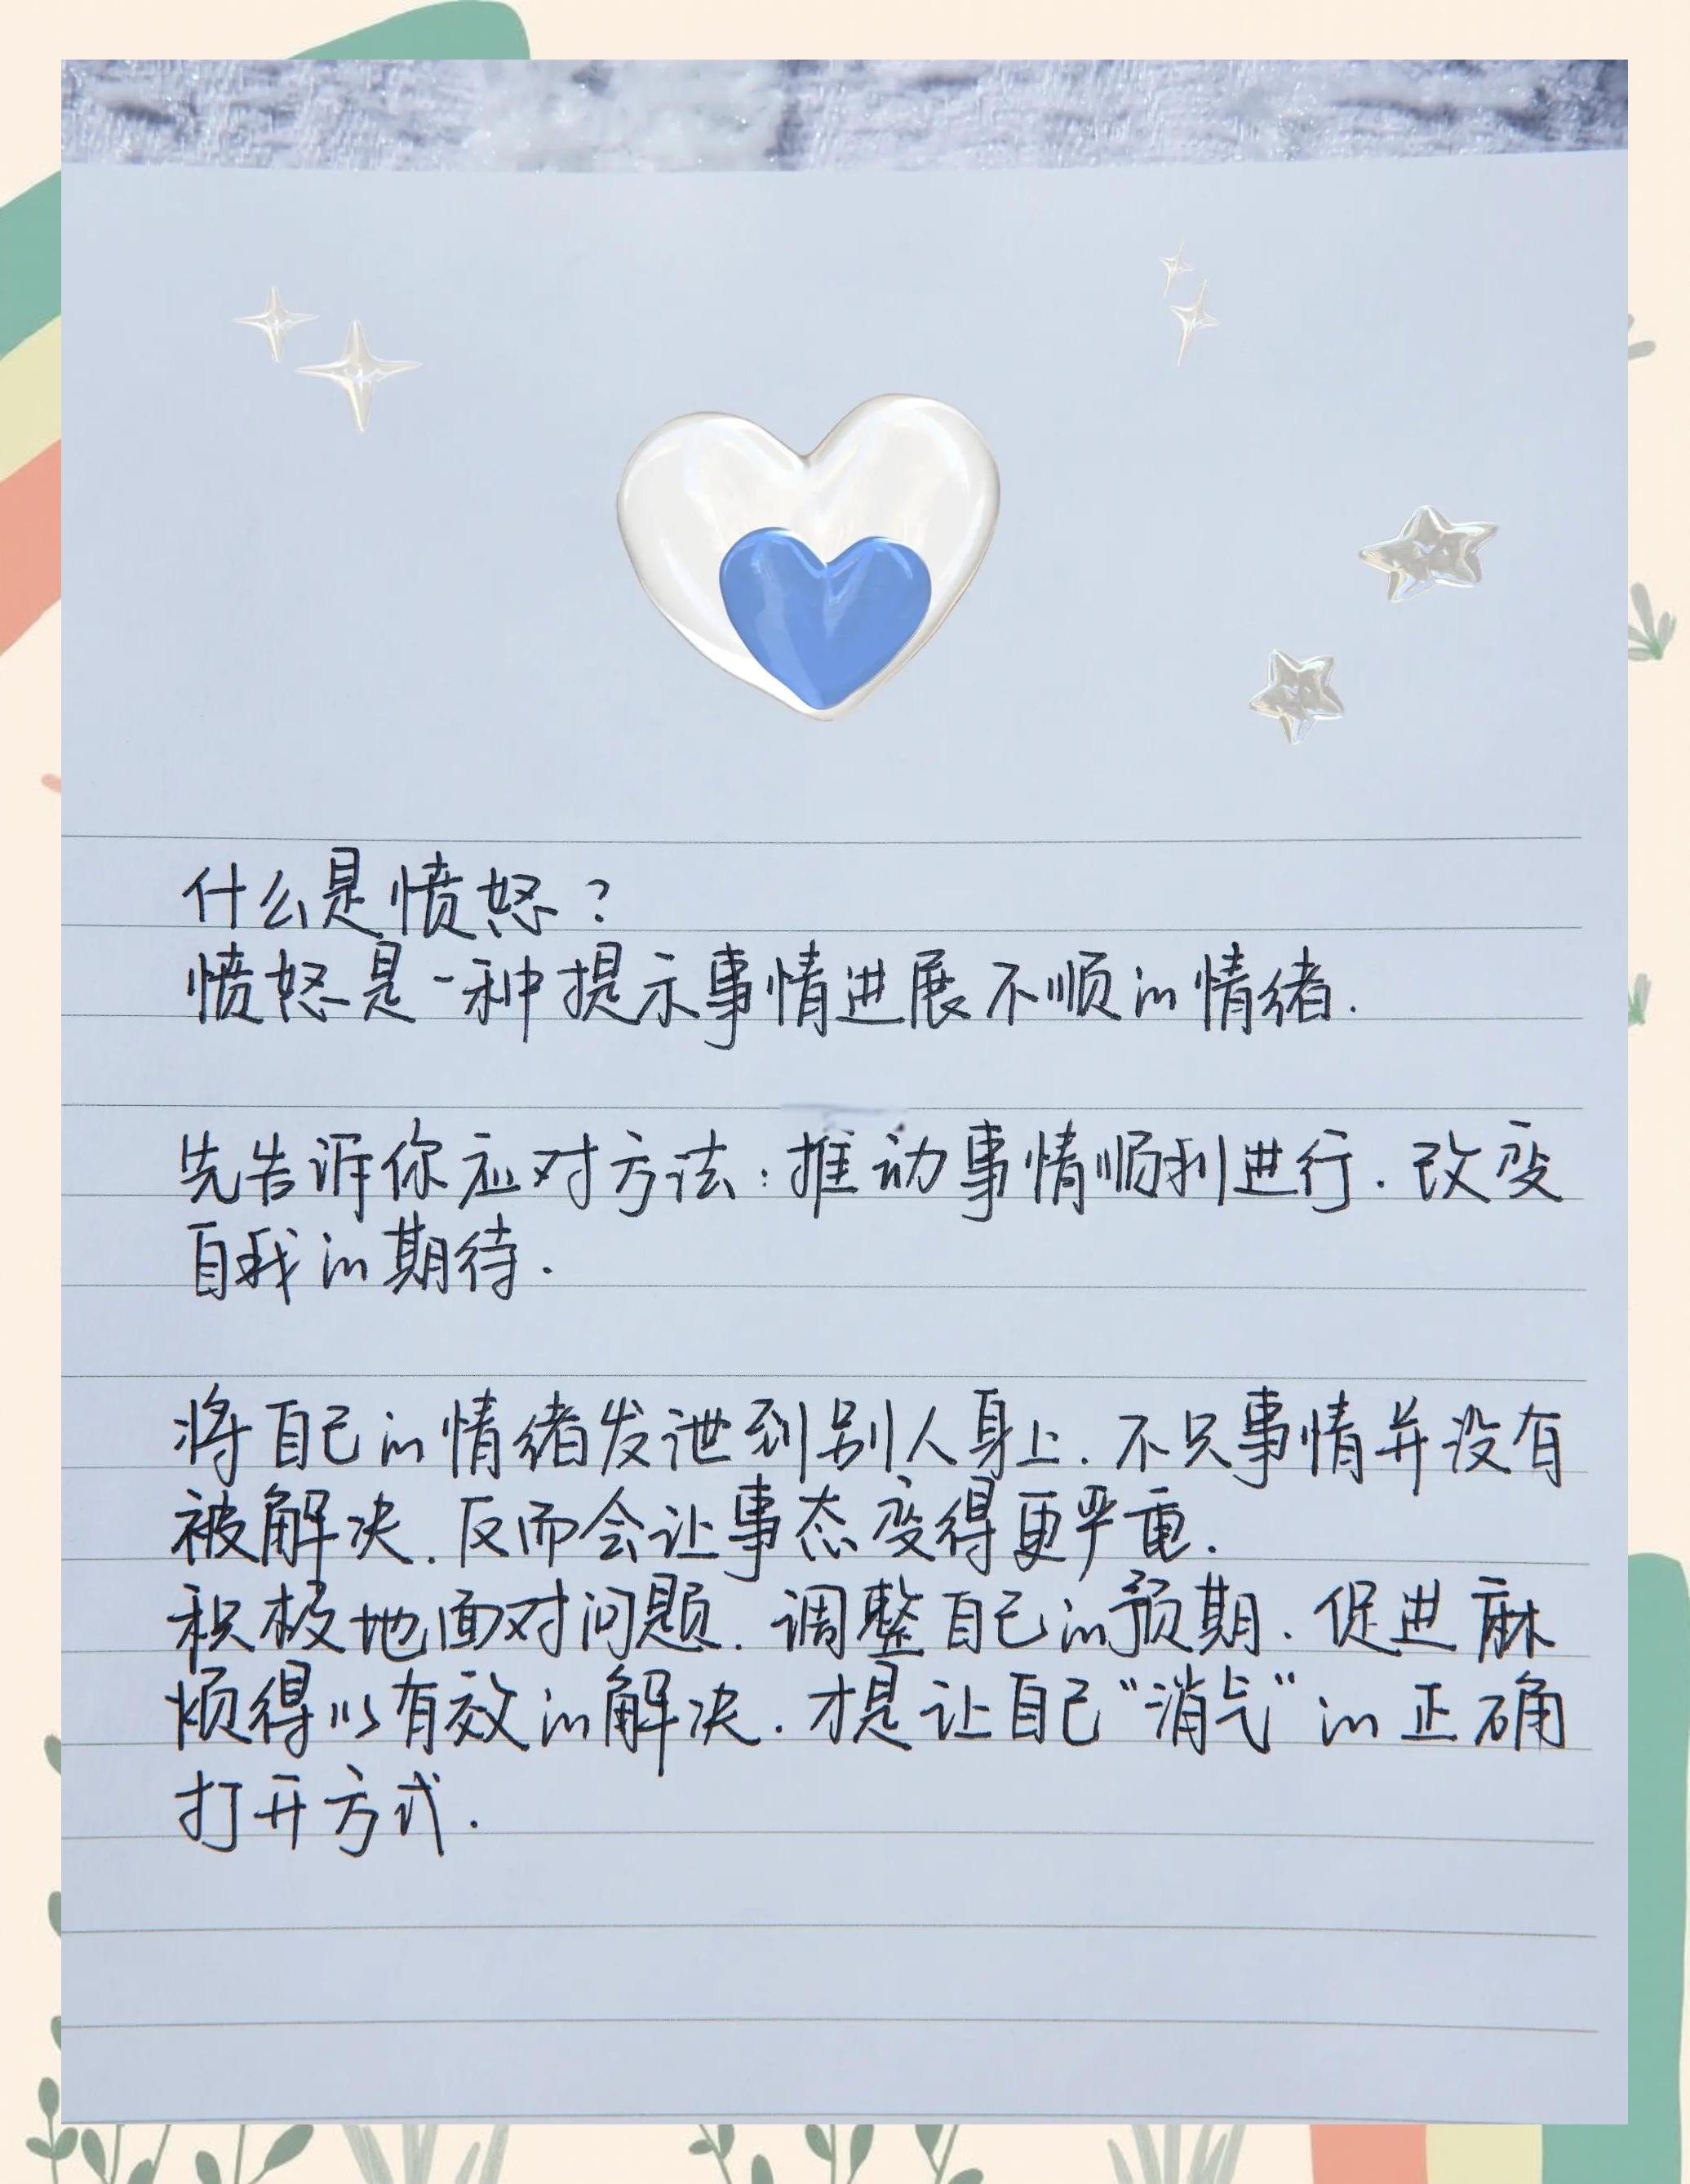 什么是愤怒？
愤怒是一种提示事情进展不顺的情绪.
先告诉你应对方法：推动事情顺利进行.改变
自我的期待.
将自己的情绪发泄到别人身上.不只事情并没有
被解决.反而会让事态变得更严重.
积极地面对问题.调整自己的预期.促进麻
烦得以有效的解决.才是让自己“消气”的正确
打开方式.